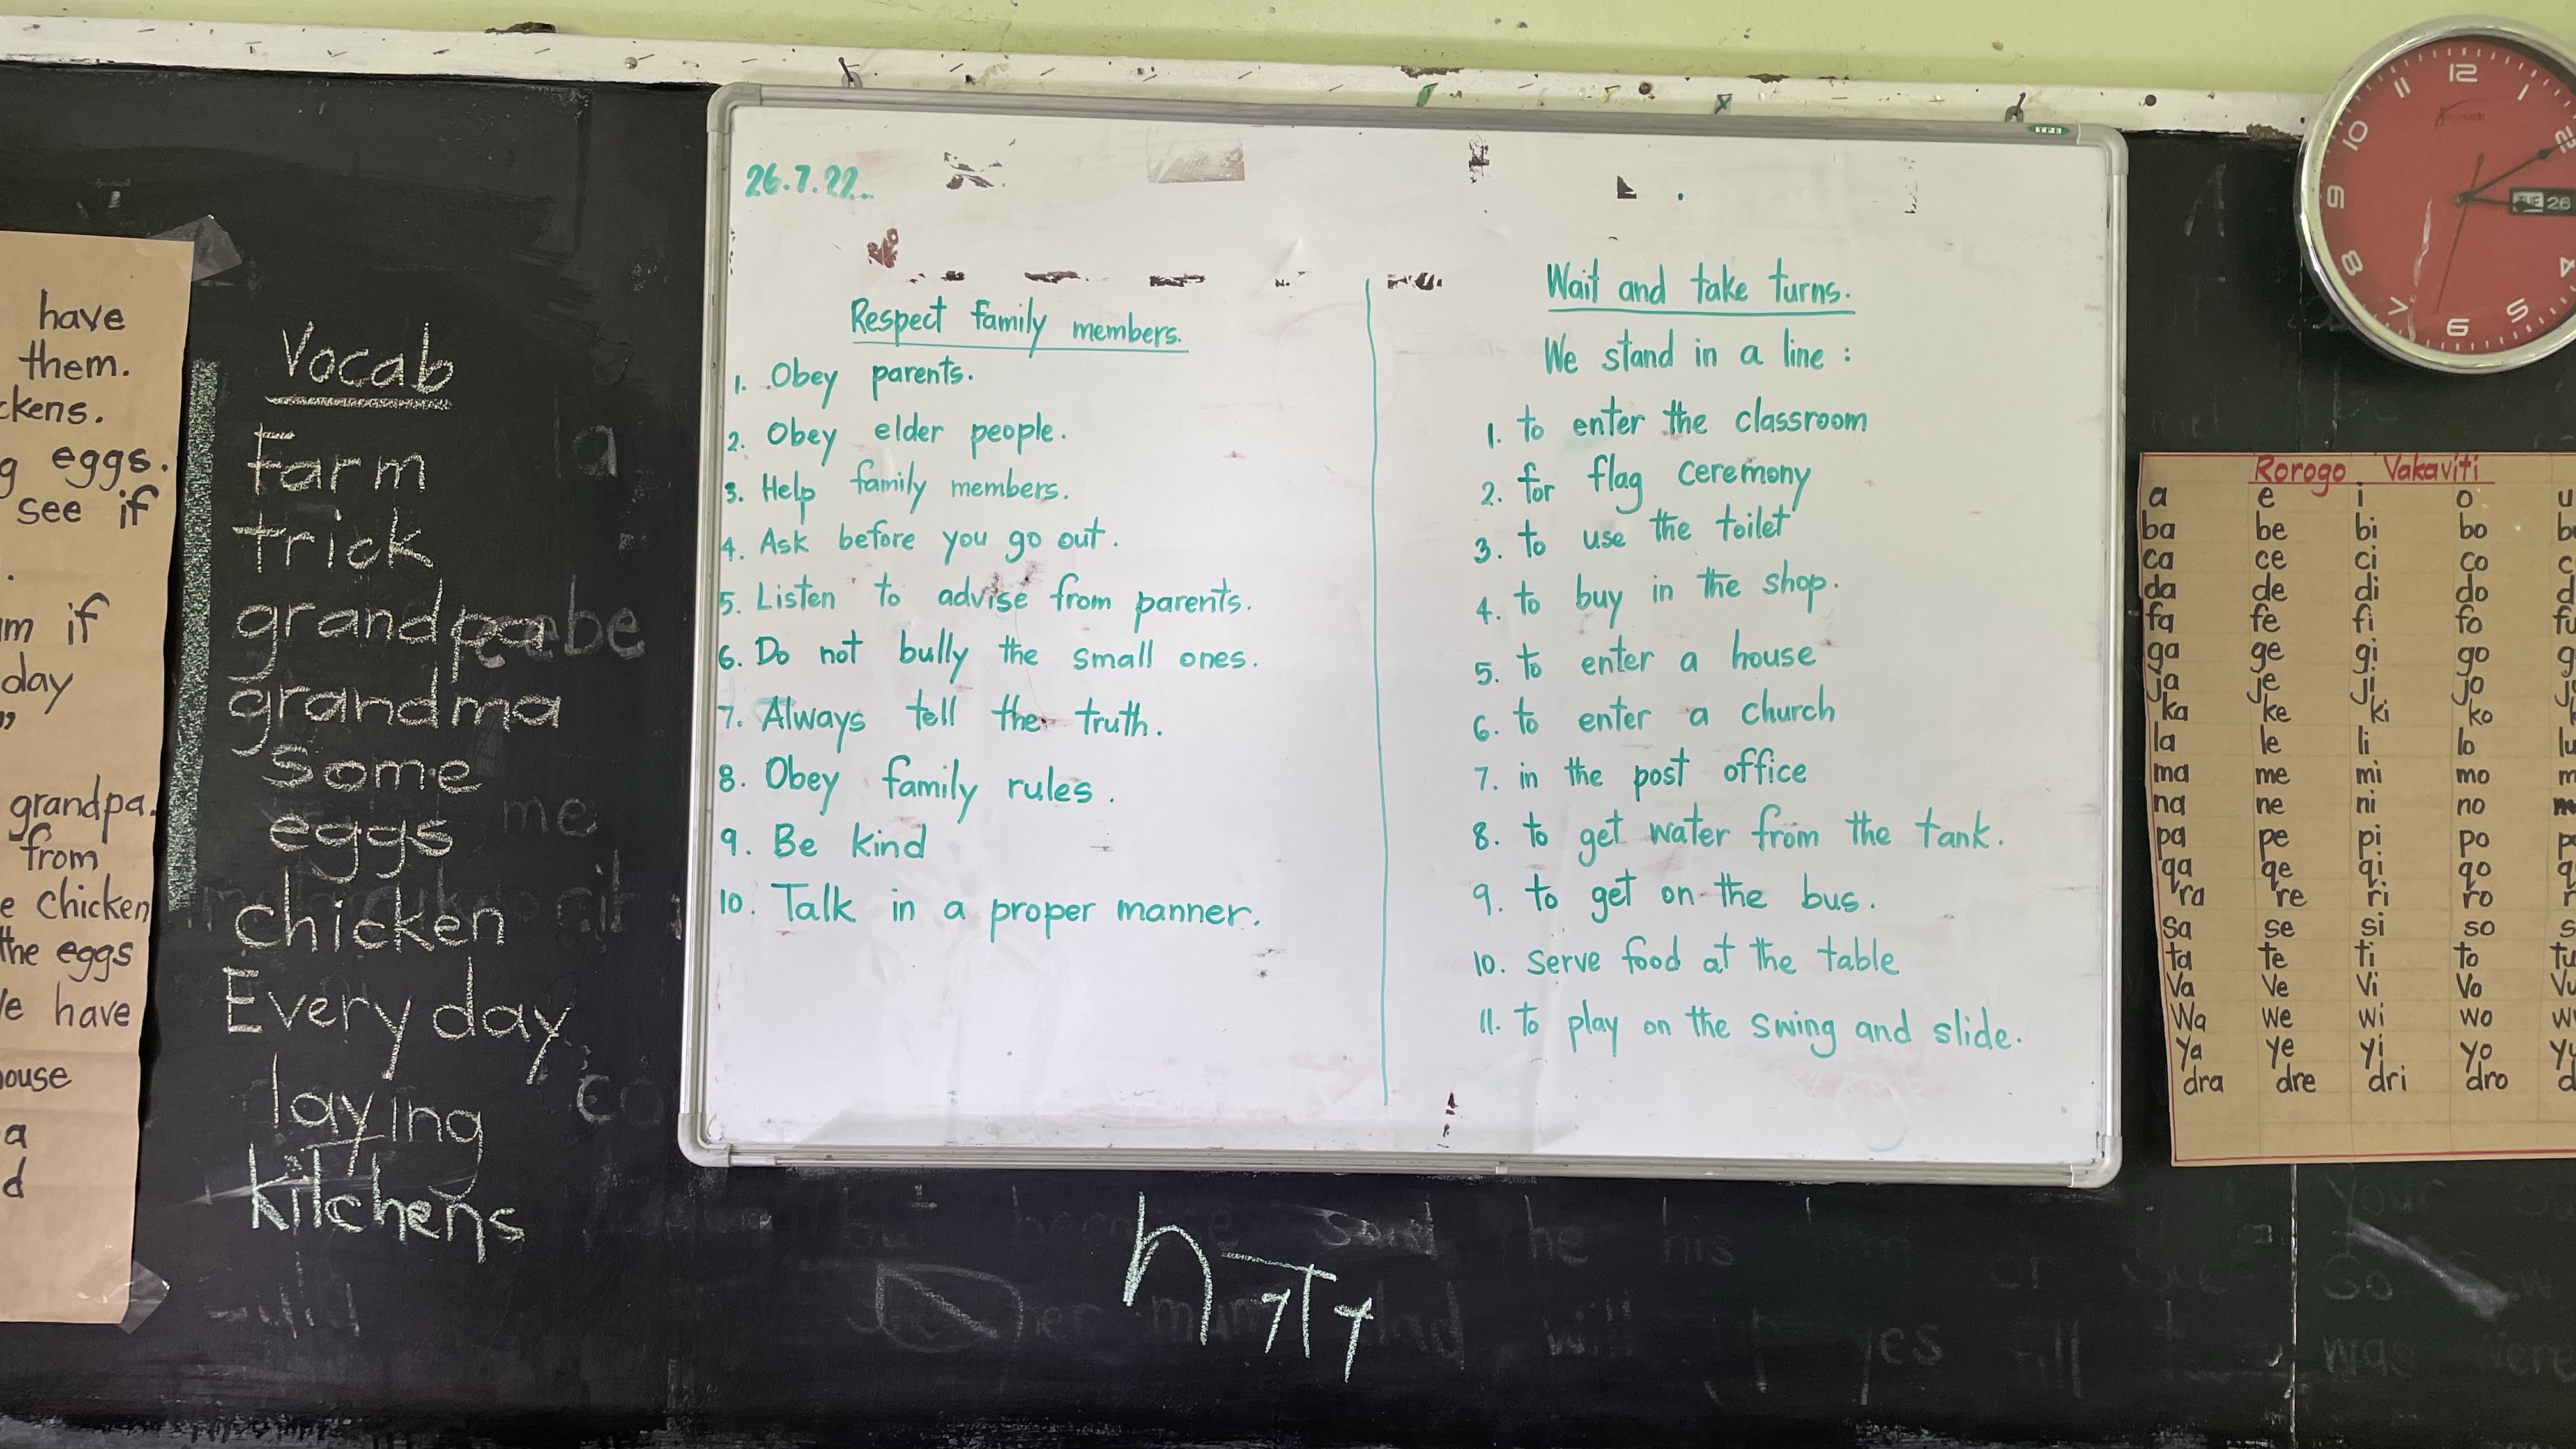 have
them.
ckens.
g eggs.
see if
.
m if
day
"
grandpa.
from
e chicken
the eggs
Ve have
ouse
a
d
Vocab
farm
trick
grandpa
be
grandma
some
eggs
me
chicken
Every day
laying
kitchens
la
26.7.22.
Respect family members.
1. Obey parents.
2. Obey elder people.
3. Help family members.
4. Ask before you go out.
5. Listen to advise from parents.
6. Do not bully the small ones.
7. Always tell the truth.
8. Obey family rules.
9. Be kind
10. Talk in a proper manner.
Wait and take turns.
We stand in a line :
1. to enter the classroom
2. for flag ceremony
3. to use the toilet
4. to buy in the shop.
5. to enter a house
6. to enter a church
7. in the post office
8. to get water from the tank.
9. to get on the bus.
10. serve food at the table
11. to play on the swing and slide.
he his
will
yes
was
12
1
4
5
6
7
8
9
10
11
26
Rorogo Vakaviti
a e i o u
ba be bi bo
ca ce ci co
da de di do
fa fe fi fo fu
ga ge gi go
ja je ji jo
ka ke ki ko
la le li lo lu
ma me mi mo
na ne ni no
pa pe pi po
qa qe qi qo
ra re ri ro
sa se si so
ta te ti to tu
Va Ve Vi Vo Vu
Wa we wi wo
ya ye yi yo
dra dre dri dro